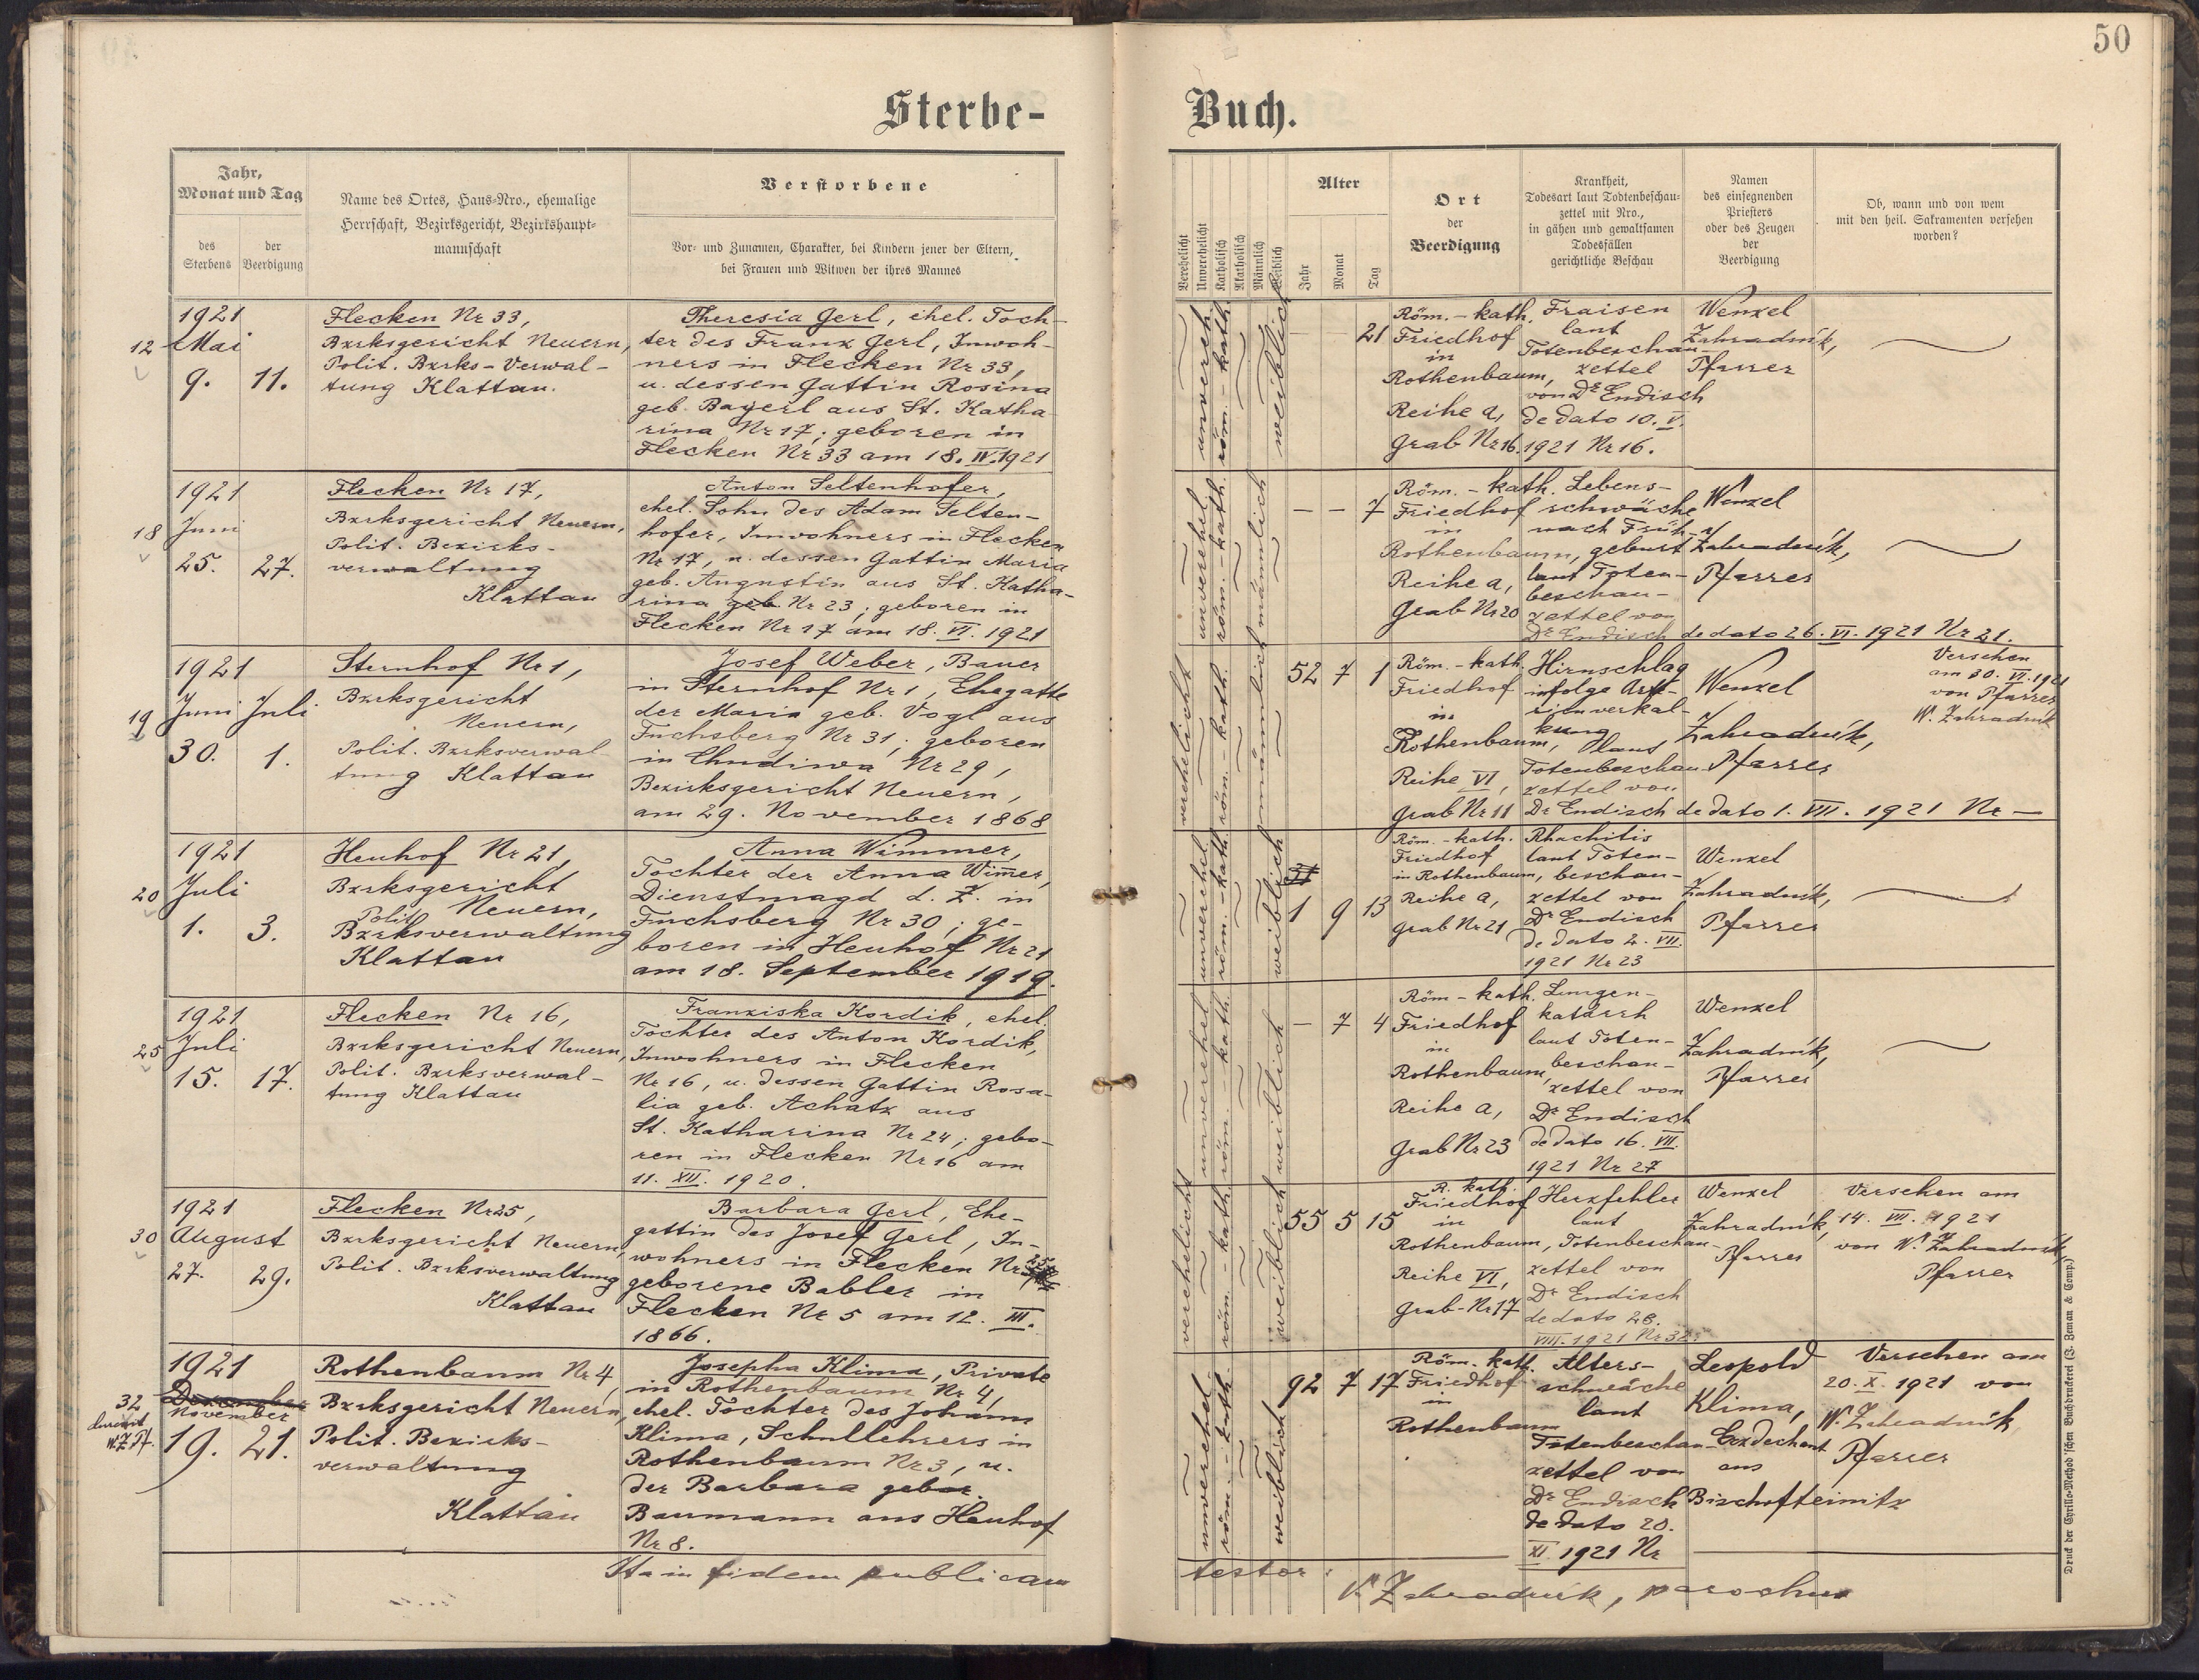 50
Sterbe-
Buch.
Jahr,
Monat und Tag
des
Sterbens
der
Beerdigung
Name des Ortes, Haus-Nro., ehemalige
Herrschaft, Bezirksgericht, Bezirkshaupt-
mannschaft
Verstorbene
Vor- und Zunamen, Charakter, bei Kindern jener der Eltern,
bei Frauen und Witwen der ihres Mannes
Verehelicht
Unverehelicht
Katholisch
Akatholisch
Männlich
Weiblich
Alter
Jahr
Monat
Tag
Ort
der
Beerdigung
Krankheit,
Todesart laut Todtenbeschau-
zettel mit Nro.,
in gähen und gewaltsamen
Todesfällen
gerichtliche Beschau
Namen
des einsegnenden
Priesters
oder des Zeugen
der
Beerdigung
Ob, wann und von wem
mit den heil. Sakramenten versehen
worden?
12
1921
Mai
9. 11.
Flecken Nr 33,
Bzrksgericht Neuern,
Polit. Bzrks-Verwal-
tung Klattau.
Theresia Gerl, ehel. Toch-
ter des Franz Gerl, Inwoh-
ners in Flecken Nr 33,
u. dessen Gattin Rosina
geb. Bayerl aus St. Katha
rina Nr 17; geboren in
Flecken Nr 33 am 18. IV. 1921
unvereh.
röm.-kath.
weiblich
— 21
Röm.-kath.
Friedhof
in
Rothenbaum,
Reihe a,
Grab Nr 16.
Fraisen
laut
Totenbeschau-
zettel
von Dr Endisch
de dato 10. V.
1921 Nr 16.
Wenzel
Zahradník,
Pfarrer
18
1921
Juni
25. 27.
Flecken Nr 17,
Bzrksgericht Neuern,
Polit. Bezirks-
verwaltung
Klattau
Anton Seltenhofer,
ehel. Sohn des Adam Selten-
hofer, Inwohners in Flecken
Nr 17, u. dessen Gattin Maria
geb. Augustin aus St. Katha-
rina geb. Nr 23; geboren in
Flecken Nr 17 am 18. VI. 1921
unverehel.
röm.-kath.
männlich
— — 7
Röm.-kath.
Friedhof
in
Rothenbaum,
Reihe a,
Grab Nr 20
Lebens-
schwäche
nach Früh-
geburt
laut Toten-
beschau-
zettel von
Dr Endisch de dato 26. VI. 1921 Nr 21.
Wenzel
Zahradník,
Pfarrer
19
1921
Juni Juli
30. 1.
Sternhof Nr 1,
Bzrksgericht
Neuern,
Polit. Bzrksverwal
tung Klattau
Josef Weber, Bauer
in Sternhof Nr 1, Ehegatte
der Maria geb. Vogl aus
Fuchsberg Nr 31; geboren
in Chudiwa Nr 29,
Bezirksgericht Neuern,
am 29. November 1868
verehelicht
röm.-kath.
männlich
52 7 1
Röm.-kath.
Friedhof
in
Rothenbaum,
Reihe VI,
Grab Nr 11
Hirnschlag
infolge Arte-
rienverkal-
kung
laut
Totenbeschau
zettel von
Dr Endisch de dato 1. VII. 1921 Nr —
Wenzel
Zahradník,
Pfarrer
Versehen
am 30. VI. 1921
von Pfarrer
W. Zahradník
20
1921
Juli
1. 3.
Heuhof Nr 21,
Bzrksgericht
Neuern,
Polit.
Bzrksverwaltung
Klattau
Anna Wimmer,
Tochter der Anna Wim̅er,
Dienstmagd d. Z. in
Fuchsberg Nr 30; ge-
boren in Heuhof Nr 21
am 18. September 1919.
unverehel.
röm.-kath.
weiblich
1 9 13
Röm.-kath.
Friedhof
in Rothenbaum,
Reihe a,
Grab Nr 21
Rhachitis
laut Toten-
beschau-
zettel von
Dr Endisch
de dato 2. VII.
1921 Nr 23
Wenzel
Zahradník,
Pfarrer
25
1921
Juli
15. 17.
Flecken Nr 16,
Bzrksgericht Neuern,
Polit. Bzrksverwal-
tung Klattau
Franziska Kordik, ehel.
Tochter des Anton Kordik,
Inwohners in Flecken
Nr 16, u. dessen Gattin Rosa-
lia geb. Achatz aus
St. Katharina Nr 24; gebo-
ren in Flecken Nr 16 am
11. XII. 1920.
unverehel
röm.-kath.
weiblich
— 7 4
Röm-kath.
Friedhof
in
Rothenbaum,
Reihe a,
Grab Nr 23
Lungen-
katarrh
laut Toten-
beschau-
zettel von
Dr Endisch
de dato 16. VII.
1921 Nr 27
Wenzel
Zahradník,
Pfarrer
30
1921
August
27. 29.
Flecken Nr 25,
Bzrksgericht Neuern,
Polit. Bzrksverwaltung
Klattau
Barbara Gerl, Ehe-
gattin des Josef Gerl, In-
wohners in Flecken Nr 25,
geborene Babler in
Flecken Nr 5 am 12. III.
1866.
verehelicht
röm.-kath.
weiblich
55 5 15
R. kath.
Friedhof
in
Rothenbaum,
Reihe VI,
Grab-Nr 17
Herzfehler
laut
Totenbeschau-
zettel von
Dr Endisch
de dato 28.
VIII. 1921 Nr 32.
Wenzel
Zahradník,
Pfarrer
Versehen am
14. VIII. 1921
von W. Zahradník,
Pfarrer
32
W. Z. Pf.
1921
Dezember
November
19. 21.
Rothenbaum Nr 4,
Bzrksgericht Neuern,
Polit. Bezirks-
verwaltung
Klattau
Josepha Klima, Private
in Rothenbaum Nr 4,
ehel. Tochter des Johann
Klima, Schullehrers in
Rothenbaum Nr 3, u.
der Barbara gebor.
Baumann aus Heuhof
Nr 8.
unverehel.
röm.-kath.
weiblich
92 7 17
Röm.-kath.
Friedhof
in
Rothenbaum
Alters-
schwäche
laut
Totenbeschau-
zettel von
Dr Endisch
de dato 20.
XI. 1921 Nr
Leopold
Klima,
Erzdechant
aus
Bischofteinitz
Versehen am
20. X. 1921 von
W. Zahradník,
Pfarrer
Ita in fidem publicam
testor:
W. Zahradník, parochus
Druck der Cyrillo-Method'schen Buchdruckerei (J. Zeman & Comp.)